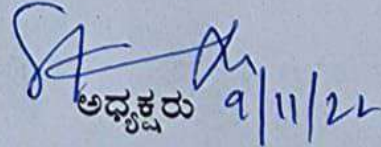 ಅಧ್ಯಕ್ಷರು 9/11/22